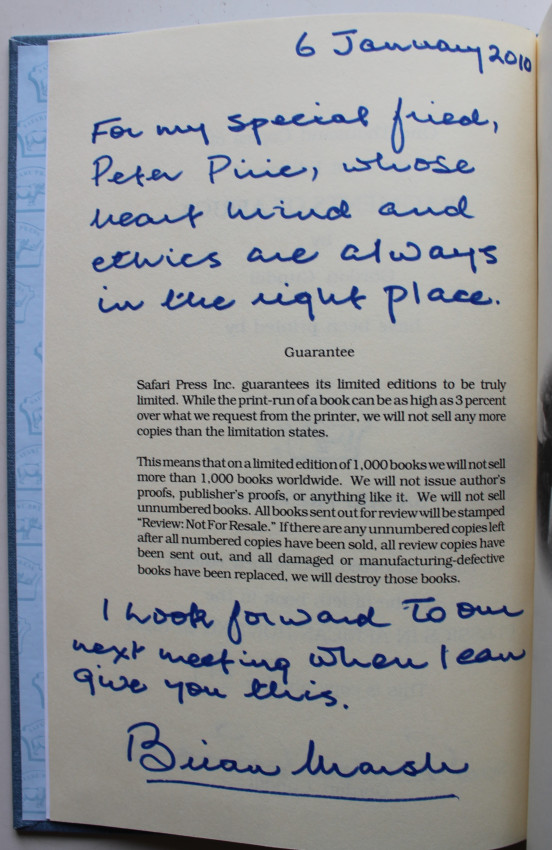 6 January 2010
For my special fried,
Peter Pirie, whose
heart mind and
ethics are always
in the right place.
Guarantee
Safari Press Inc. guarantees its limited editions to be truly
limited. While the print-run of a book can be as high as 3 percent
over what we request from the printer, we will not sell any more
copies than the limitation states.
This means that on a limited edition of 1,000 books we will not sell
more than 1,000 books worldwide. We will not issue author's
proofs, publisher's proofs, or anything like it. We will not sell
unnumbered books. All books sent out for review will be stamped
"Review: Not For Resale." If there are any unnumbered copies left
after all numbered copies have been sold, all review copies have
been sent out, and all damaged or manufacturing-defective
books have been replaced, we will destroy those books.
I look forward to our
next meeting when I can
give you this.
Brian Marsh